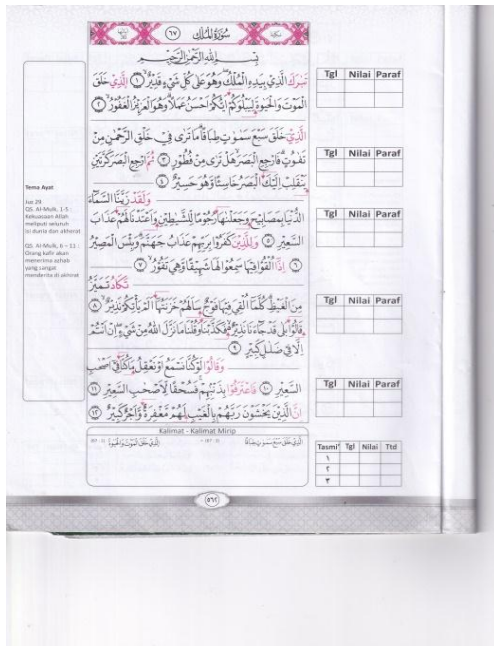 سُورَةُ المُلْكِ
٦٧
مكية
بِسْمِ اللهِ الرَّحْمٰنِ الرَّحِيْمِ
تَبٰرَكَ الَّذِيْ بِيَدِهِ الْمُلْكُ وَهُوَ عَلٰى كُلِّ شَيْءٍ قَدِيْرٌ ١ الَّذِيْ خَلَقَ
الْمَوْتَ وَالْحَيٰوةَ لِيَبْلُوَكُمْ اَيُّكُمْ اَحْسَنُ عَمَلًا وَهُوَ الْعَزِيْزُ الْغَفُوْرُ ٢
الَّذِيْ خَلَقَ سَبْعَ سَمٰوٰتٍ طِبَاقًا مَا تَرٰى فِيْ خَلْقِ الرَّحْمٰنِ مِنْ
تَفٰوُتٍ فَارْجِعِ الْبَصَرَ هَلْ تَرٰى مِنْ فُطُوْرٍ ٣ ثُمَّ ارْجِعِ الْبَصَرَ كَرَّتَيْنِ
يَنْقَلِبْ اِلَيْكَ الْبَصَرُ خَاسِئًا وَهُوَ حَسِيْرٌ ٤
وَلَقَدْ زَيَّنَّا السَّمَاءَ
الدُّنْيَا بِمَصَابِيْحَ وَجَعَلْنٰهَا رُجُوْمًا لِلشَّيٰطِيْنِ وَاَعْتَدْنَا لَهُمْ عَذَابَ
السَّعِيْرِ ٥ وَلِلَّذِيْنَ كَفَرُوْا بِرَبِّهِمْ عَذَابُ جَهَنَّمَ وَبِئْسَ الْمَصِيْرُ
٦ اِذَا اُلْقُوْا فِيْهَا سَمِعُوْا لَهَا شَهِيْقًا وَهِيَ تَفُوْرُ ٧
تَكَادُ تَمَيَّزُ
مِنَ الْغَيْظِ كُلَّمَا اُلْقِيَ فِيْهَا فَوْجٌ سَاَلَهُمْ خَزَنَتُهَا اَلَمْ يَأْتِكُمْ نَذِيْرٌ ٨
قَالُوْا بَلٰى قَدْ جَاءَنَا نَذِيْرٌ فَكَذَّبْنَا وَقُلْنَا مَا نَزَّلَ اللهُ مِنْ شَيْءٍ اِنْ اَنْتُمْ
اِلَّا فِيْ ضَلٰلٍ كَبِيْرٍ ٩
وَقَالُوْا لَوْ كُنَّا نَسْمَعُ اَوْ نَعْقِلُ مَا كُنَّا فِيْ اَصْحٰبِ
السَّعِيْرِ ١٠ فَاعْتَرَفُوْا بِذَنْبِهِمْ فَسُحْقًا لِاَصْحٰبِ السَّعِيْرِ ١١
اِنَّ الَّذِيْنَ يَخْشَوْنَ رَبَّهُمْ بِالْغَيْبِ لَهُمْ مَغْفِرَةٌ وَاَجْرٌ كَبِيْرٌ ١٢
Kalimat - Kalimat Mirip
الَّذِيْ خَلَقَ سَبْعَ سَمٰوٰتٍ طِبَاقًا
الَّذِيْ خَلَقَ الْمَوْتَ وَالْحَيٰوةَ
٥٦٢
Tema Ayat
Juz 29
QS. Al-Mulk, 1-5 :
Kekuasaan Allah
meliputi seluruh
isi dunia dan akherat
QS. Al-Mulk, 6 - 11 :
Orang kafir akan
menerima azhab
yang sangat
menderita di akhirat
Tgl Nilai Paraf
Tgl Nilai Paraf
Tgl Nilai Paraf
Tgl Nilai Paraf
Tgl Nilai Paraf
Tasmi' Tgl Nilai Ttd
١
٢
٣